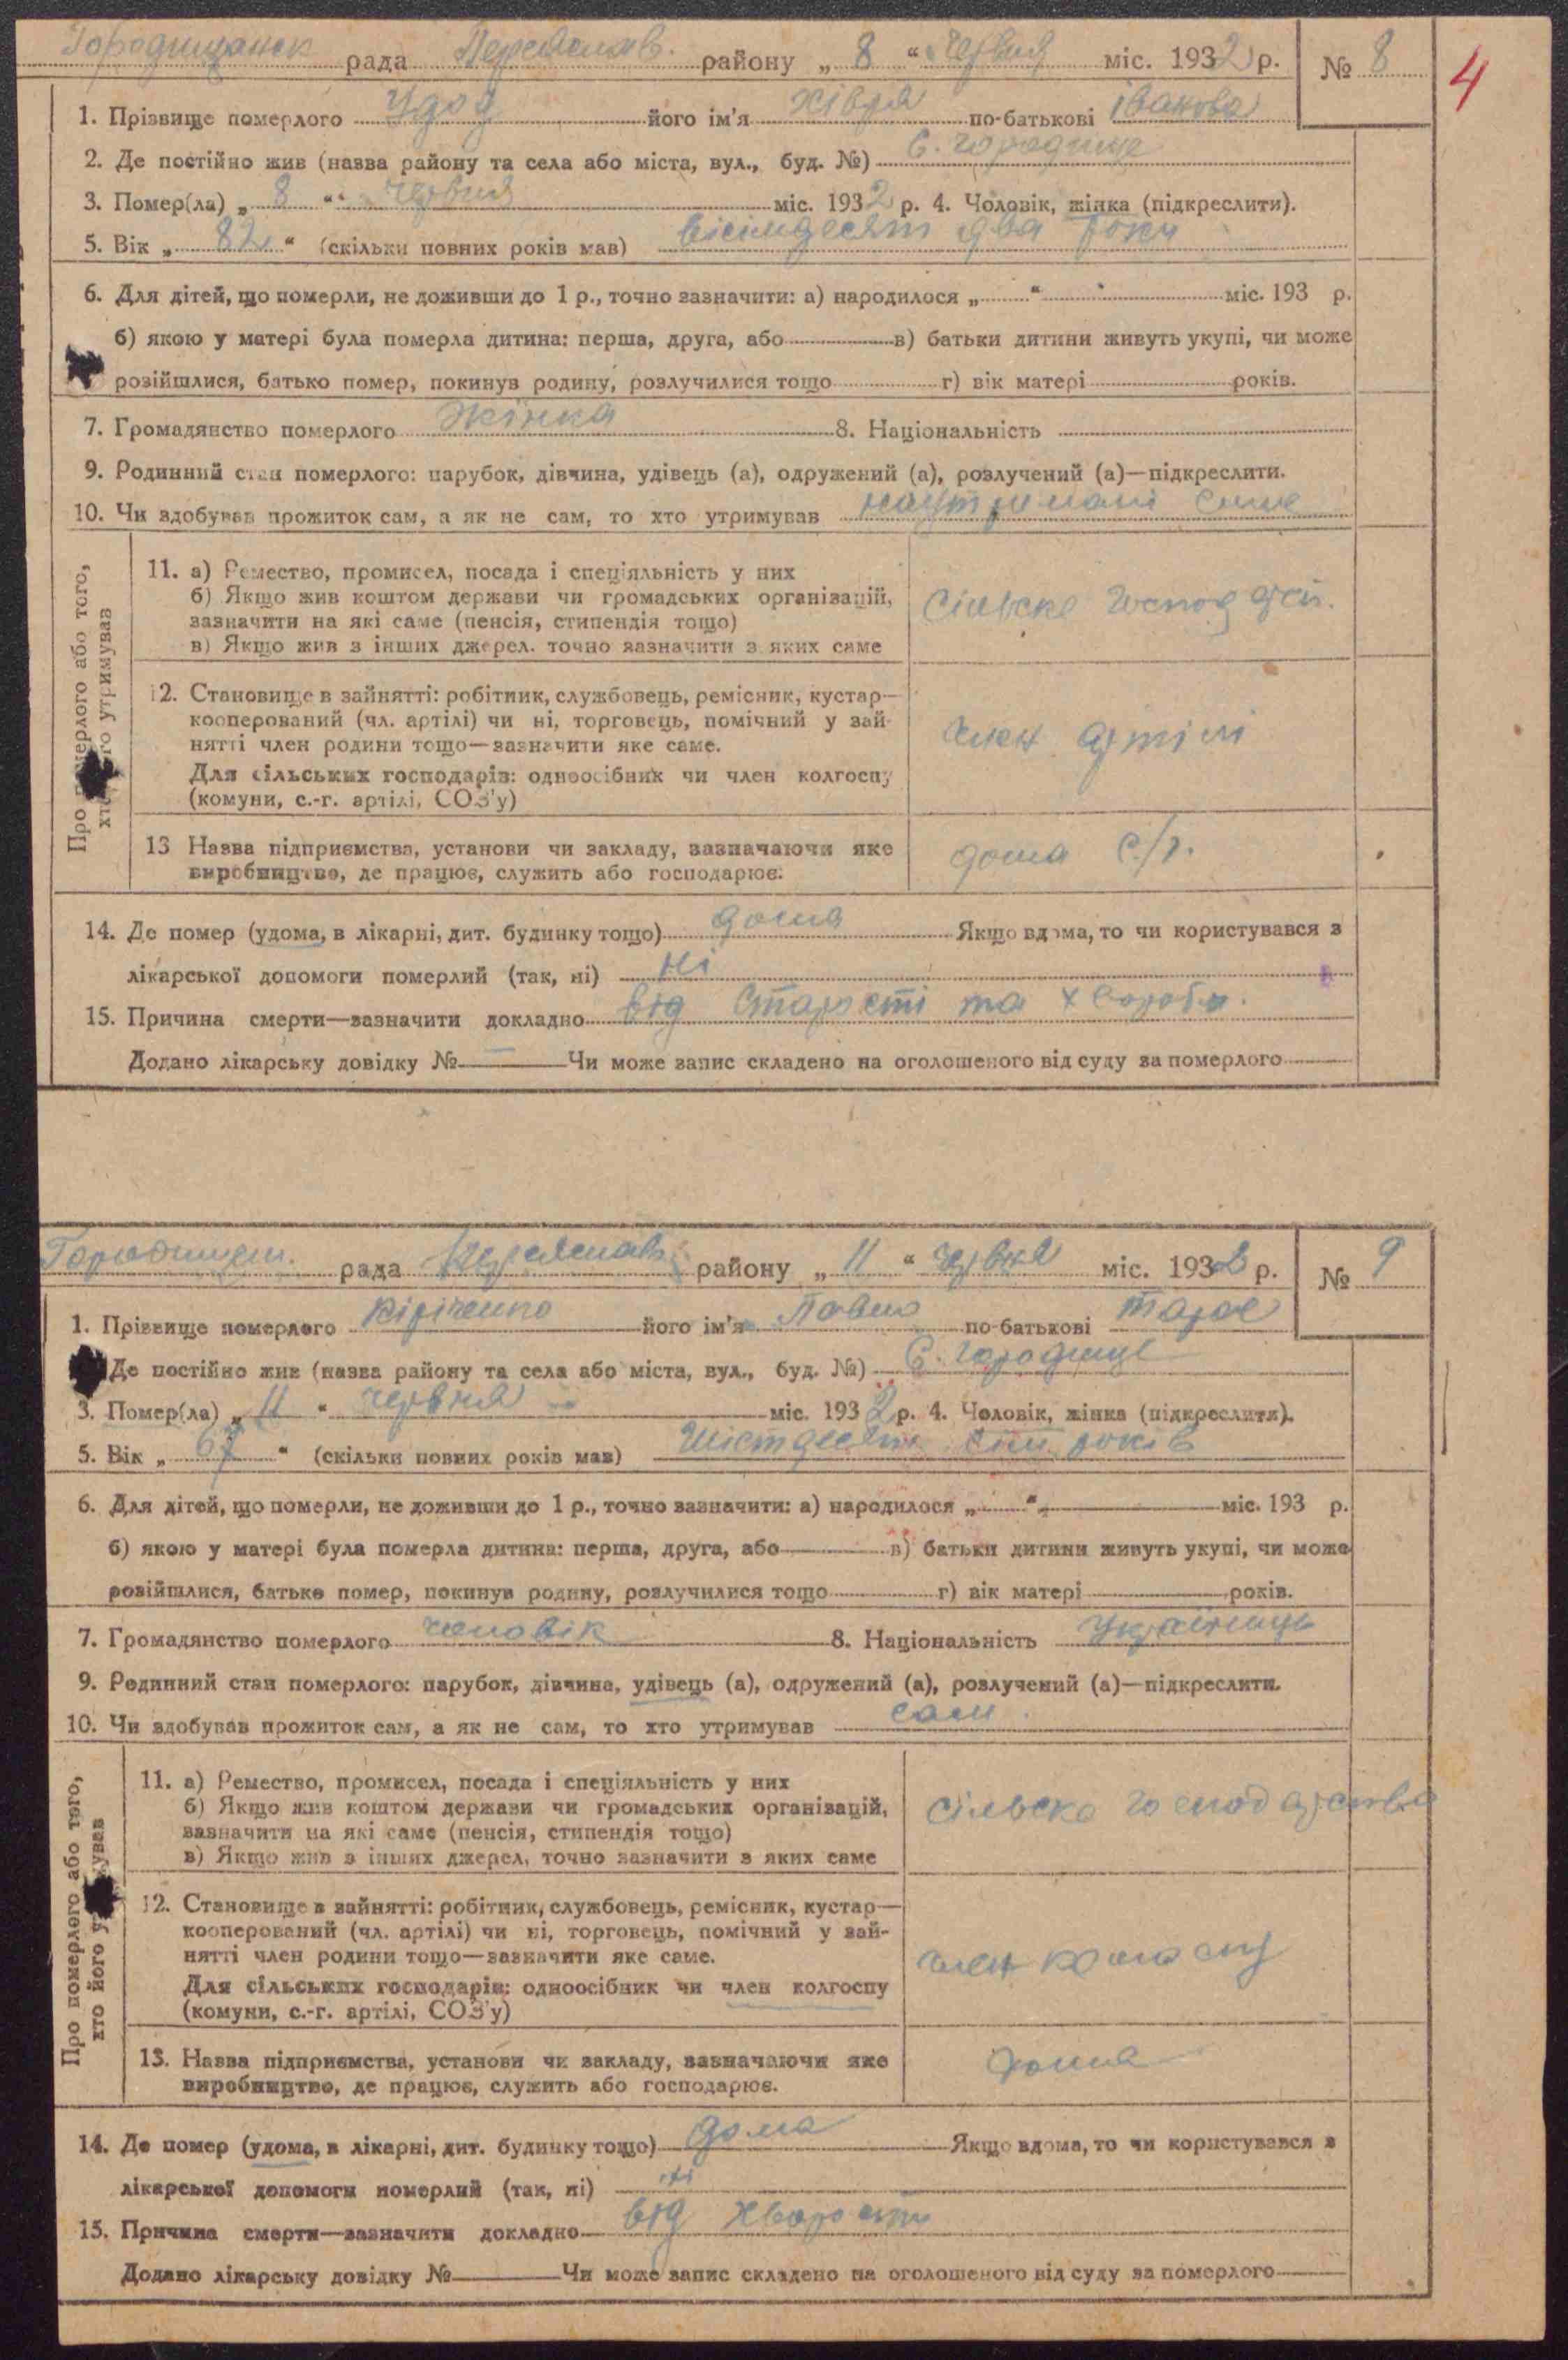 Городищанськ рада Переяслав. району „ 8 “ Червня міс. 1932 р. № 8
4
1. Прізвище померлого Удод його ім'я Хівря по-батькові Іванова
2. Де постійно жив (назва району та села або міста, вул., буд. №) С. Городище
3. Помер(ла) „ 8 “ Червня міс. 1932 р. 4. Чоловік, жінка (підкреслити).
5. Вік „ 82 “ (скільки повних років мав) вісімдесят два роки
6. Для дітей, що померли, не доживши до 1 р., точно зазначити: а) народилося „ “ міс. 193 р.
б) якою у матері була померла дитина: перша, друга, або в) батьки дитини живуть укупі, чи може
розійшлися, батько помер, покинув родину, розлучилися тощо г) вік матері років.
7. Громадянство померлого жінка 8. Національність
9. Родинний стан померлого: парубок, дівчина, удівець (а), одружений (а), розлучений (а)—підкреслити.
10. Чи здобував прожиток сам, а як не сам, то хто утримував
Про померлого або того,
хто його утримував
11. а) Ремество, промисел, посада і спеціяльність у них
б) Якщо жив коштом держави чи громадських організацій,
зазначити на які саме (пенсія, стипендія тощо)
в) Якщо жив з інших джерел. точно зазначити з яких саме
Сільске
12. Становище в зайнятті: робітник, службовець, ремісник, кустар—
кооперований (чл. артілі) чи ні, торговець, помічний у зай-
нятті член родини тощо—зазначити яке саме.
Для сільських господарів: одноосібник чи член колгоспу
(комуни, с.-г. артілі, СОЗ'у)
член артілі
13 Назва підприємства, установи чи закладу, зазначаючи яке
виробництво, де працює, служить або господарює.
дома с/г.
14. Де помер (удома, в лікарні, дит. будинку тощо) дома Якщо вдома, то чи користувався з
лікарської допомоги померлий (так, ні) ні
15. Причина смерти—зазначити докладно від старості та хвороби.
Додано лікарську довідку № — Чи може запис складено на оголошеного від суду за померлого
Городищен. рада Переяславs району „ 11 “ Червня міс. 1932 р. № 9
1. Прізвище померлого Кіріченко його ім'я Павло по-батькові Тарас
Де постійно жив (назва району та села або міста, вул., буд. №) С. Городище
3. Помер(ла) „ 11 “ Червня міс. 1932 р. 4. Чоловік, жінка (підкреслити).
5. Вік „ 67 “ (скільки повних років мав) Шістдесят сім років
6. Для дітей, що померли, не доживши до 1 р., точно зазначити: а) народилося „ “ міс. 193 р.
б) якою у матері була померла дитина: перша, друга, або в) батьки дитини живуть укупі, чи може
розійшлися, батько помер, покинув родину, розлучилися тощо г) вік матері років.
7. Громадянство померлого чоловік 8. Національність Українець
9. Родинний стан померлого: парубок, дівчина, удівець (а), одружений (а), розлучений (а)—підкреслити.
10. Чи здобував прожиток сам, а як не сам, то хто утримував сам.
Про померлого або того,
хто його утримував
11. а) Ремество, промисел, посада і спеціяльність у них
б) Якщо жив коштом держави чи громадських організацій,
зазначити на які саме (пенсія, стипендія тощо)
в) Якщо жив з інших джерел, точно зазначити з яких саме
сільске господарство
12. Становище в зайнятті: робітник, службовець, ремісник, кустар—
кооперований (чл. артілі) чи ні, торговець, помічний у зай-
нятті член родини тощо—зазначити яке саме.
Для сільських господарів: одноосібник чи член колгоспу
(комуни, с.-г. артілі, СОЗ'у)
член колгоспу
13. Назва підприємства, установи чи закладу, зазначаючи яке
виробництво, де працює, служить або господарює.
дома
14. Де помер (удома, в лікарні, дит. будинку тощо) дома Якщо вдома, то чи користувався з
лікарської допомоги померлий (так, ні) ні
15. Причина смерти—зазначити докладно від хворости
Додано лікарську довідку № Чи може запис складено на оголошеного від суду за померлого